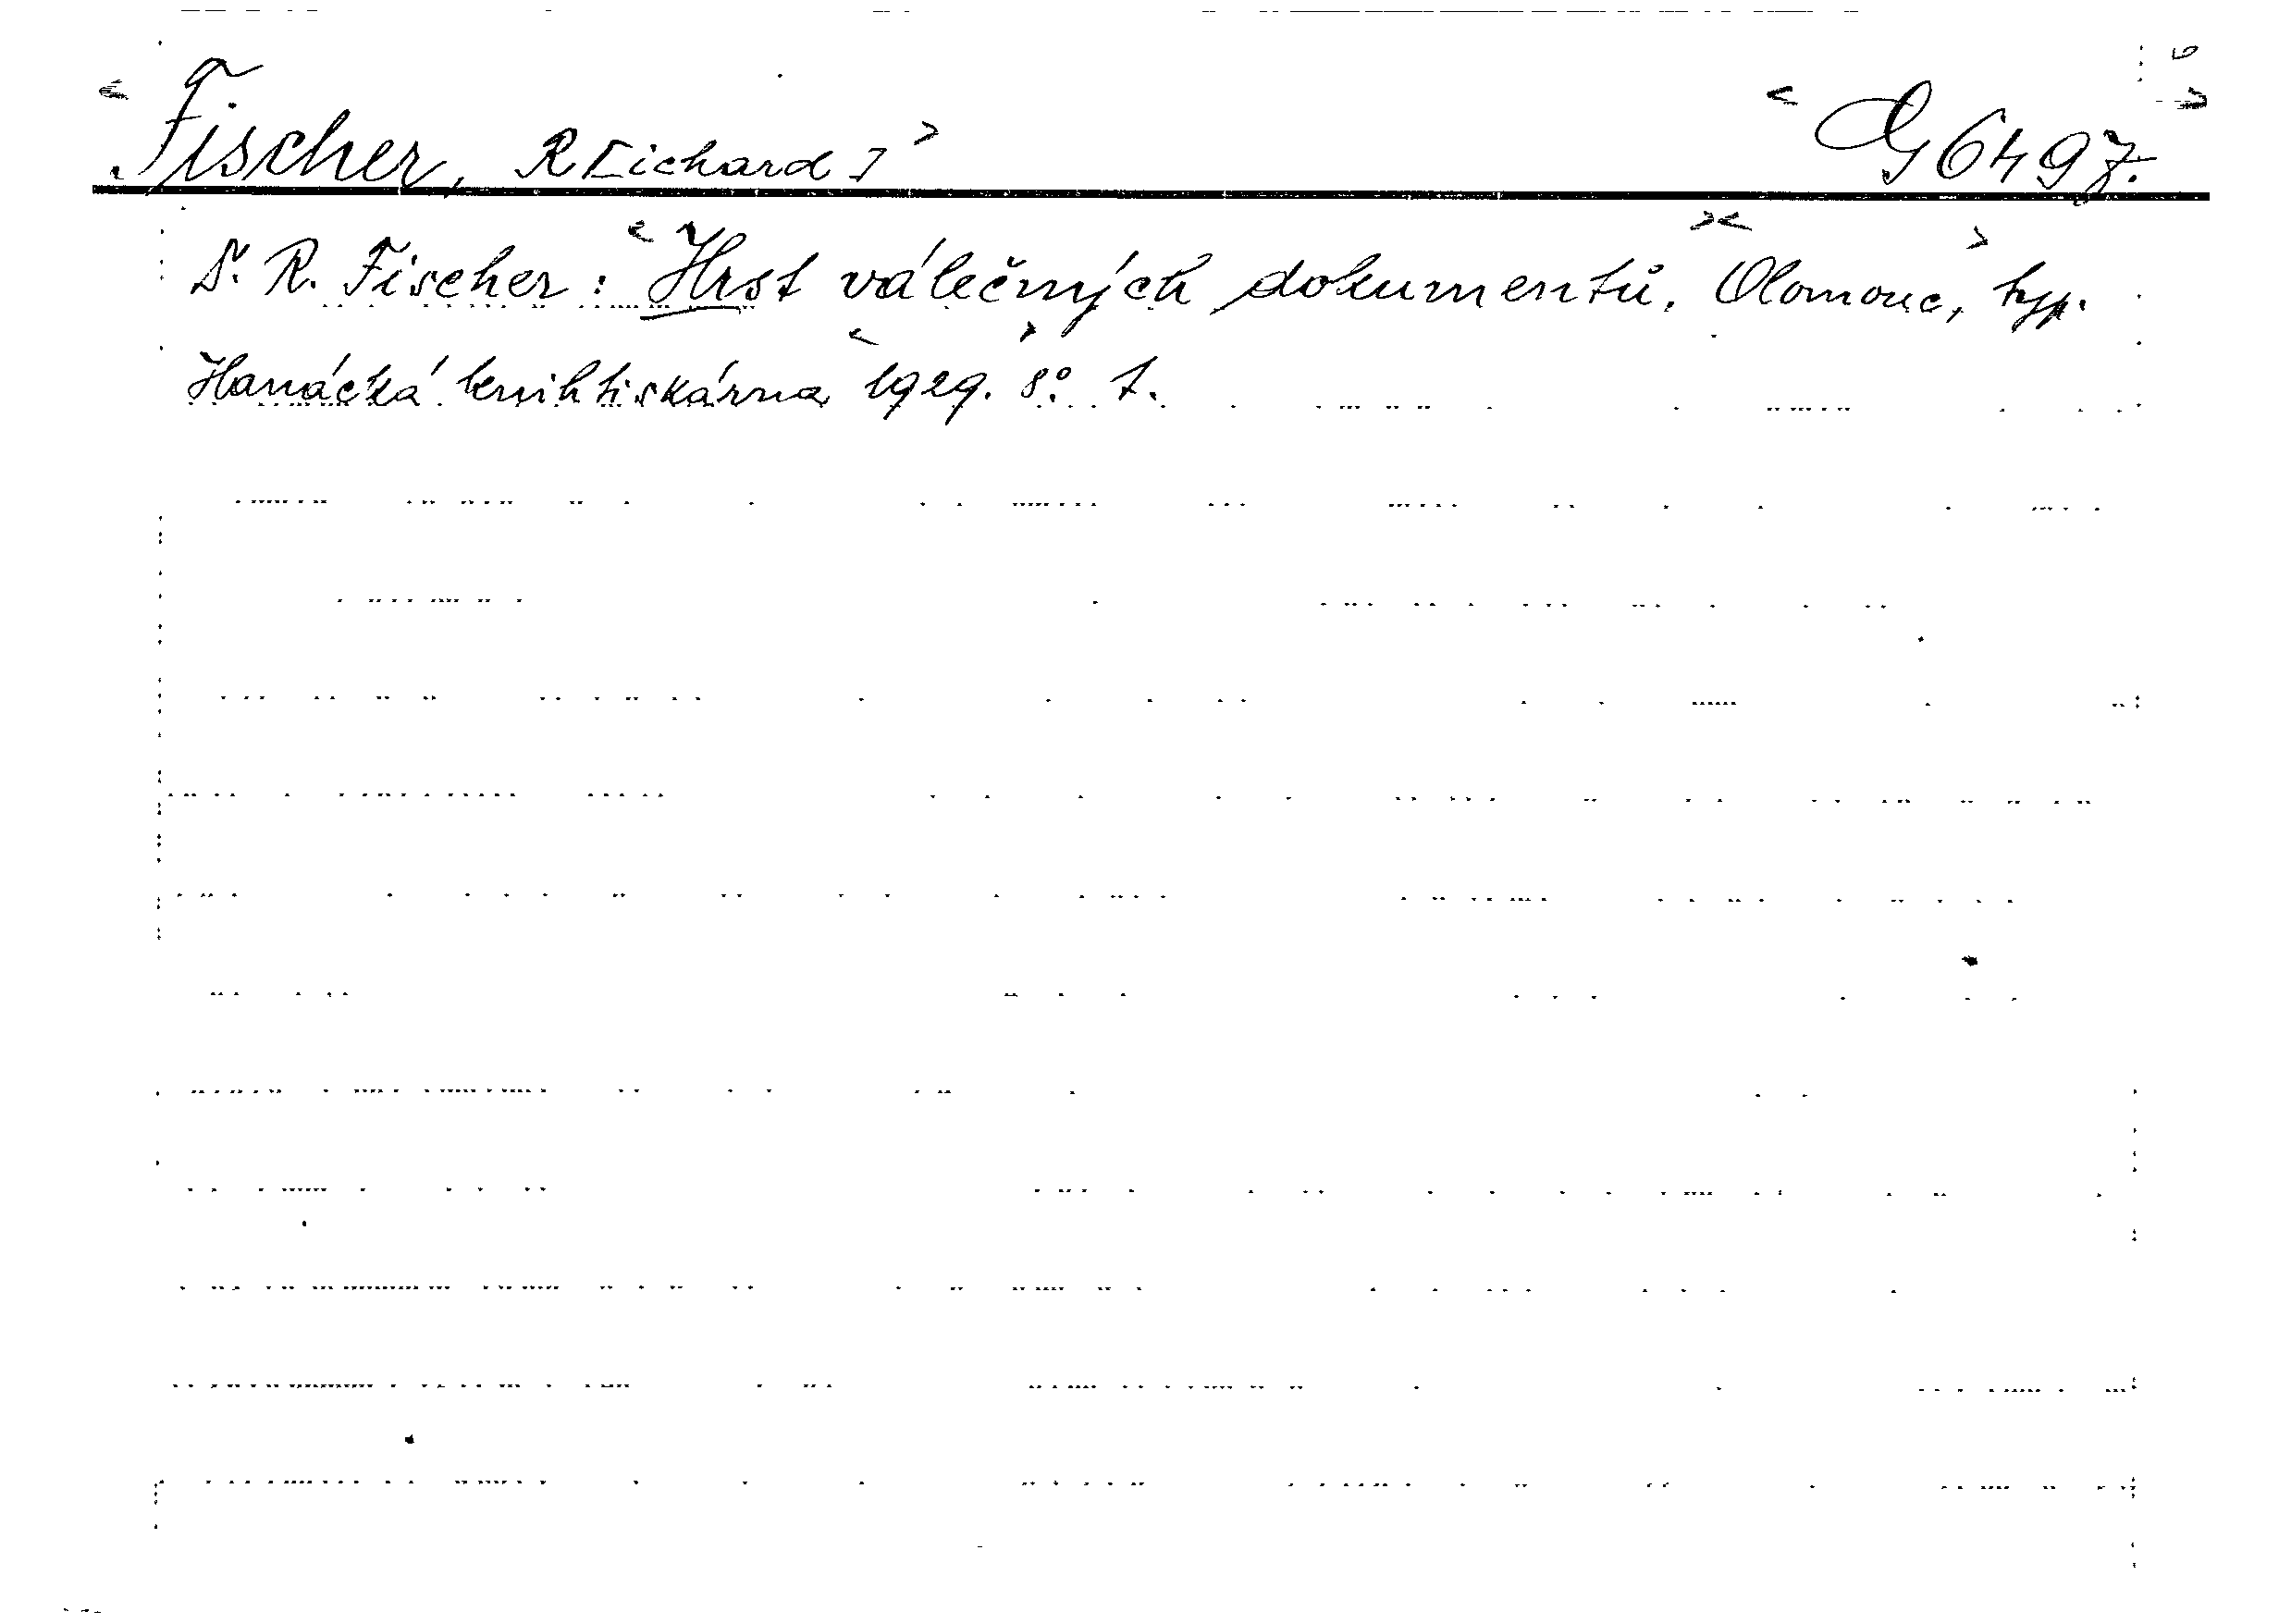 Fischer, R[ichard] G 6497.
Dr. R. Fischer: Hrst válečných dokumentů. Olomouc, typ.
Hanácká knihtiskárna 1929. 8° 1.